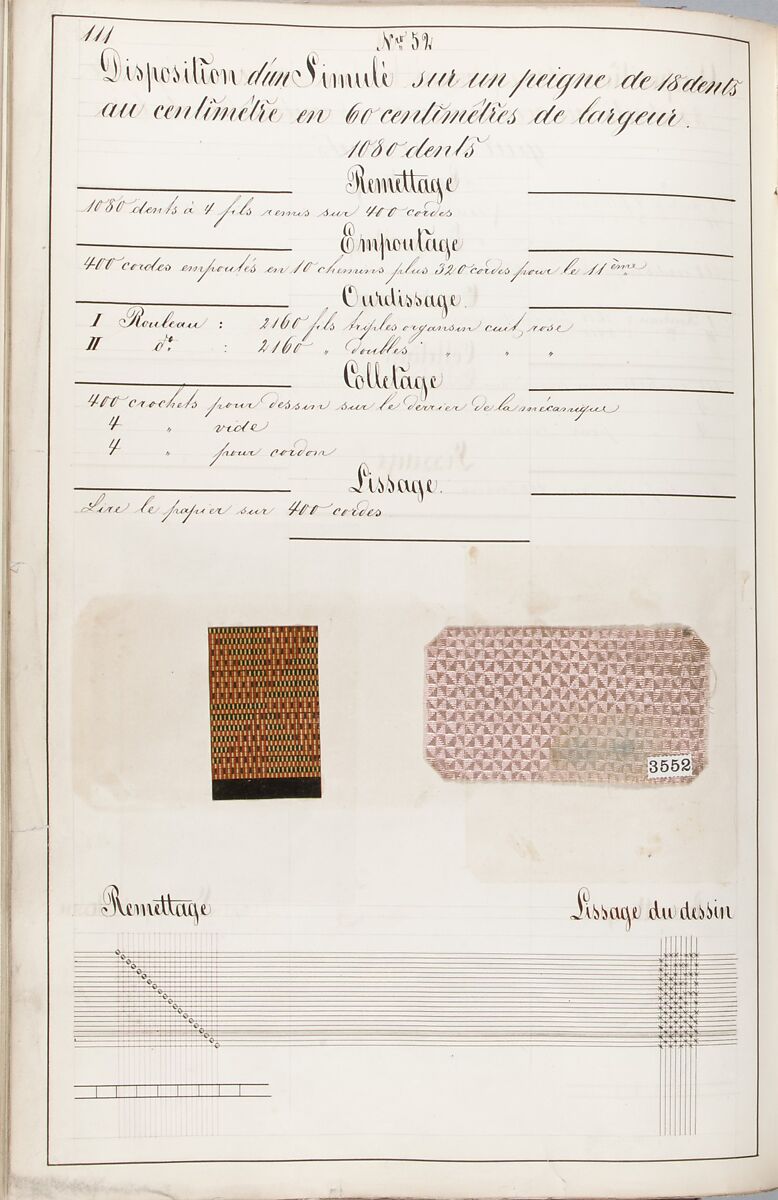 111
Nro 52
Disposition d'un Simulé sur un peigne de 18 dents
au centimêtre en 60 centimêtres de largeur.
1080 dents
Remettage
1080 dents à 4 fils remis sur 400 cordes
Empoutage
400 cordes empoutés en 10 chemins plus 320 cordes pour le 11ème
Ourdissage.
I Rouleau : 2160 fils triples organsin cuit, rose
II do. : 2160 " doubles " " "
Colletage
400 crochets pour dessin sur le derrier de la mécanique
4 " vide
4 " pour cordon
Lissage.
Lire le papier sur 400 cordes
3552
Remettage
Lissage du dessin